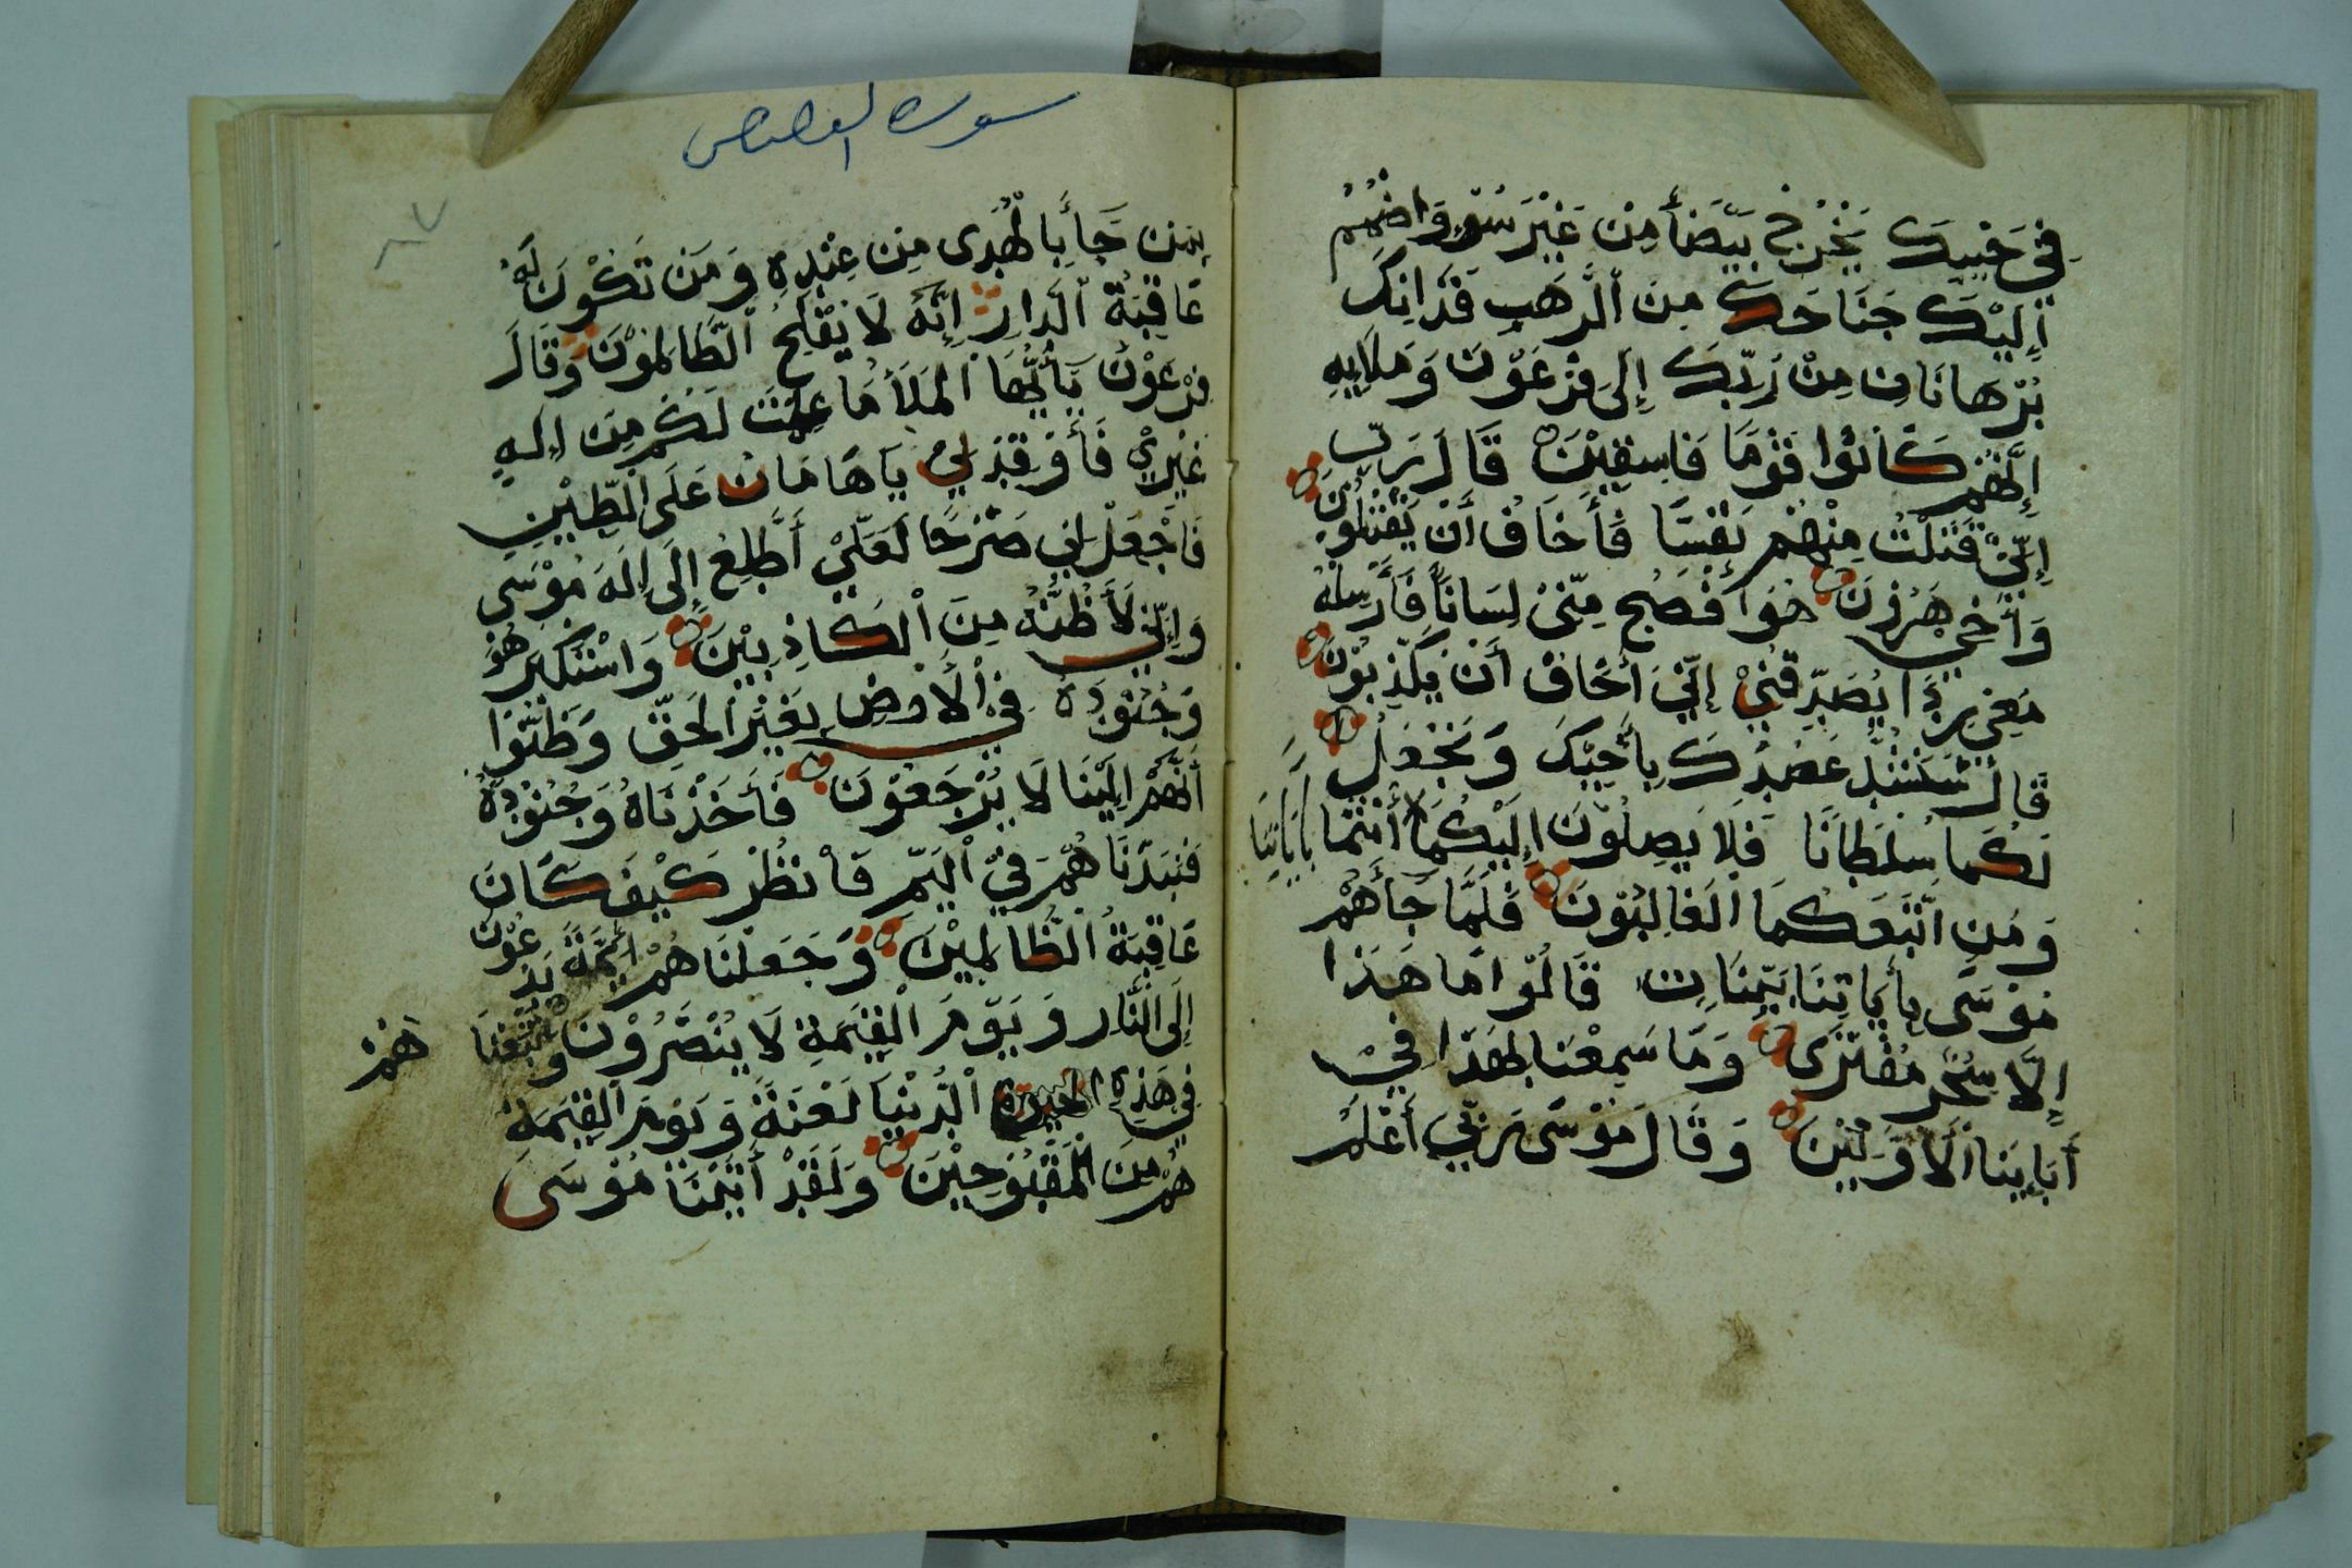 فِي جَيْبِكَ تَخْرُجْ بَيْضَأَ مِنْ غَيْرِ سُوْءٍ وَاضْمُمْ
إِلَيْكَ جَنَاحَكَ مِنَ الرَّهَبِ فَذَانِكَ
بُرْهَانَانِ مِنْ رَبِّكَ إِلَى فِرْعَوْنَ وَمَلَايِهِ
إِنَّهُمْ كَانُوْا قَوْمًا فَاسِقِيْنَ قَالَ رَبِّ
إِنِّيْ قَتَلْتُ مِنْهُمْ نَفْسًا فَأَخَافُ أَنْ يَقْتُلُوْنِ
وَأَخِيْ هَرُوْنَ هُوَ أَفْصَحُ مِنِّيْ لِسَانًا فَأَرْسِلْهُ
مَعِيَ رِدًا يُصَدِّقُنِيْ إِنِّيَ أَخَافُ أَنْ يُكَذِّبُوْنِ
قَالَ سَنَشُدُّ عَضُدَكَ بِأَخِيْكَ وَنَجْعَلُ
لَكُمَا سُلْطَانًا فَلَا يَصِلُوْنَ إِلَيْكُمَا بِأَيَاتِنَا أَنْتُمَا
وَمَنِ اتَّبَعَكُمَا الْغَالِبُوْنَ فَلَمَّا جَأَهُمْ
مُوْسَى بِأَيَاتِنَا بَيِّنَاتٍ قَالُوْا مَا هَذَا
إِلَّا سِحْرٌ مُفْتَرًى وَمَا سَمِعْنَا بِهَذَا فِيْ
أَبَايِنَا الْأَوَّلِيْنَ وَقَالَ مُوْسَى رَبِّي أَعْلَمُ
سورة القصاص
٨٧
بِمَنْ جَأَ بِالْهُدَى مِنْ عِنْدِهِ وَمَنْ تَكُوْنُ لَهُ
عَاقِبَةُ الدَّارِ إِنَّهُ لَا يُفْلِحُ الظَّالِمُوْنَ وَقَالَ
فِرْعَوْنُ يَأَيُّهَا الْمَلَأُ مَا عَلِمْتُ لَكُمْ مِنْ إِلَهٍ
غَيْرِيْ فَأَوْقِدْ لِيْ يَاهَامَانُ عَلَى الطِّيْنِ
فَاجْعَلْ لِي صَرْحًا لَعَلِّيْ أَطَّلِعُ إِلَى إِلَهِ مُوْسَى
وَإِنِّي لَأَظُنُّهُ مِنَ الْكَاذِبِيْنَ وَاسْتَكْبَرَ هُوَ
وَجُنُوْدُهُ فِيْ الْأَرْضِ بِغَيْرِ الْحَقِّ وَظَنُّوْا
أَنَّهُمْ إِلَيْنَا لَا يُرْجَعُوْنَ فَأَخَذْنَاهُ وَجُنُوْدَهُ
فَنَبَذْنَاهُمْ فِيْ الْيَمِّ فَانْظُرْ كَيْفَ كَانَ
عَاقِبَةُ الظَّالِمِيْنَ وَجَعَلْنَاهُمْ أَئِمَّةً يَدْعُوْنَ
إِلَى النَّارِ وَيَوْمَ الْقِيَمَةِ لَا يُنْصَرُوْنَ وَأَتْبَعْنَا هُمْ
فِي هَذِهِ الْحَيوةِ الدُّنْيَا لَعْنَةً وَيَوْمَ الْقِيَمَةِ
هُمْ مِنَ الْمَقْبُوْحِيْنَ وَلَقَدْ أَتَيْنَا مُوْسَى